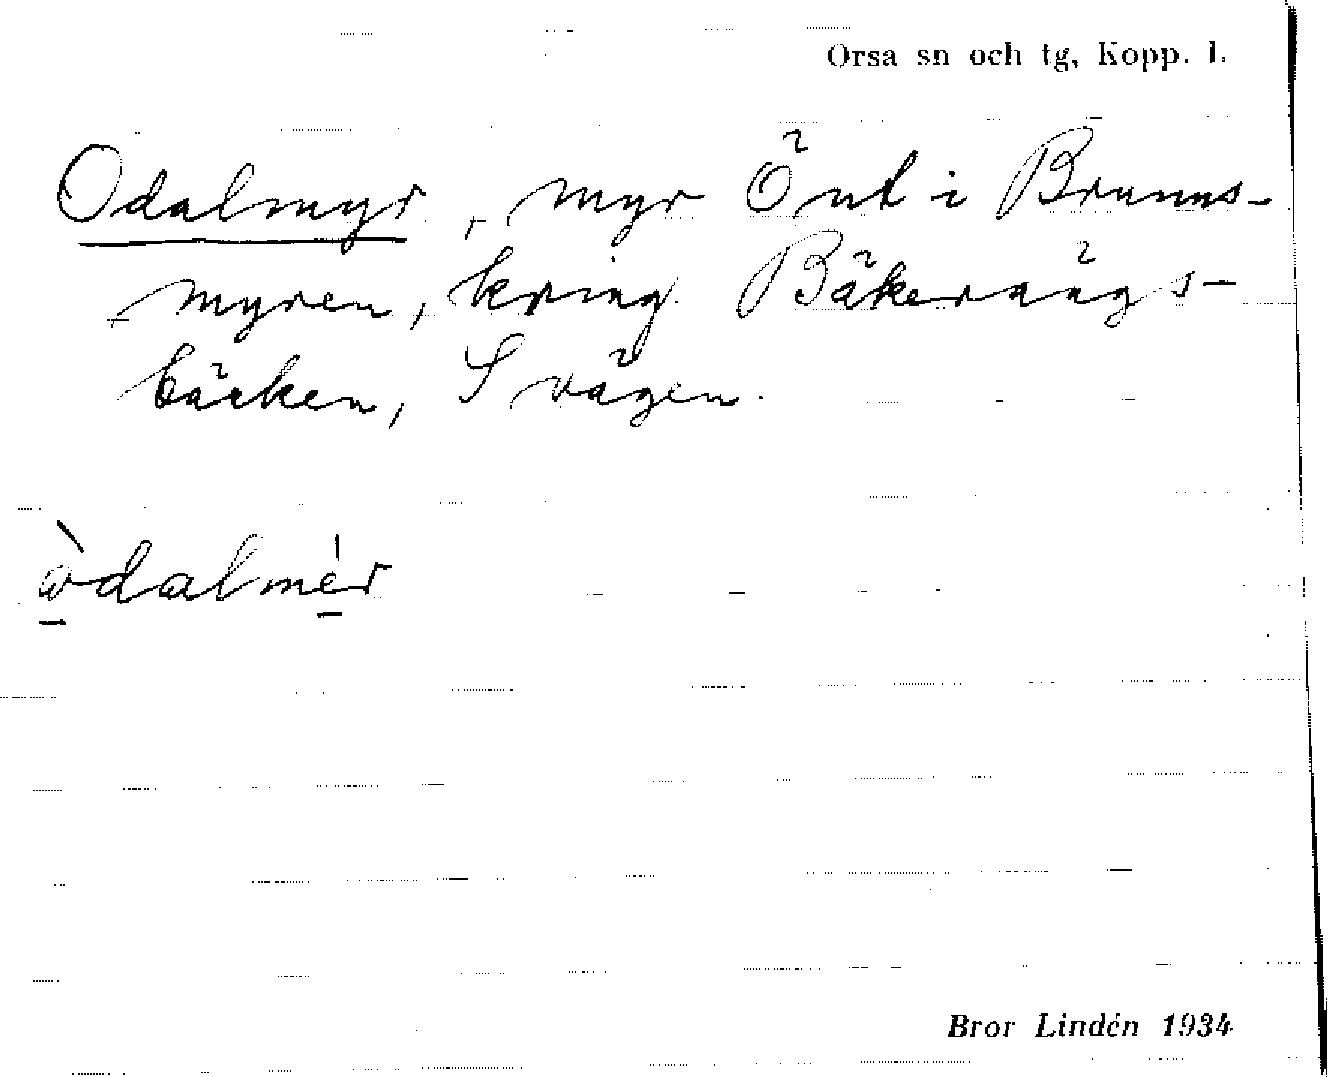 Orsa sn och tg, Kopp. l.
Odalmyr, myr Önt i Bruns-
myren, kring Bäkerängs-
bäcken, S vägen.
òdalmér
Bror Lindén 1934